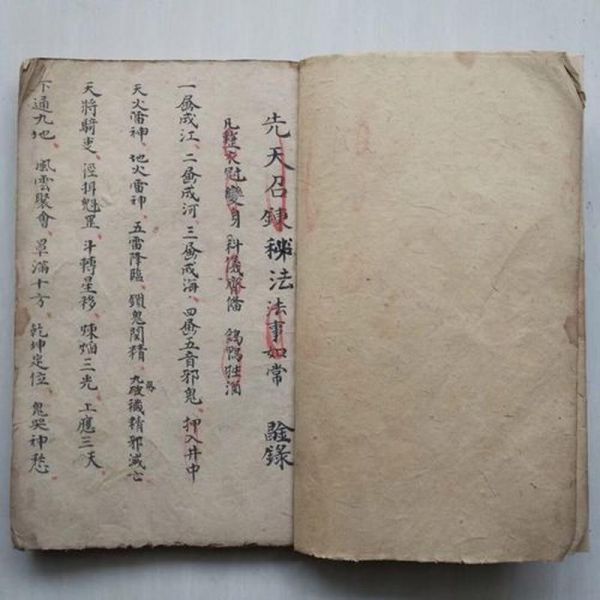 先天召鍊秘法 法事如常 謄錄
凡整衣冠變身 科儀齊備 鷄鴨牲酒
一為成江、二為成河、三為成海、四為五音邪鬼、押入井中
天火雷神、地火雷神、五雷降臨、鎖鬼関精、九破穢精邪滅亡
天將騎吏、逕捐魁罡、斗轉星移、煉煅三光、上應三天
下通九地、風雲聚會、罩滿十方、乾坤定位、鬼哭神愁